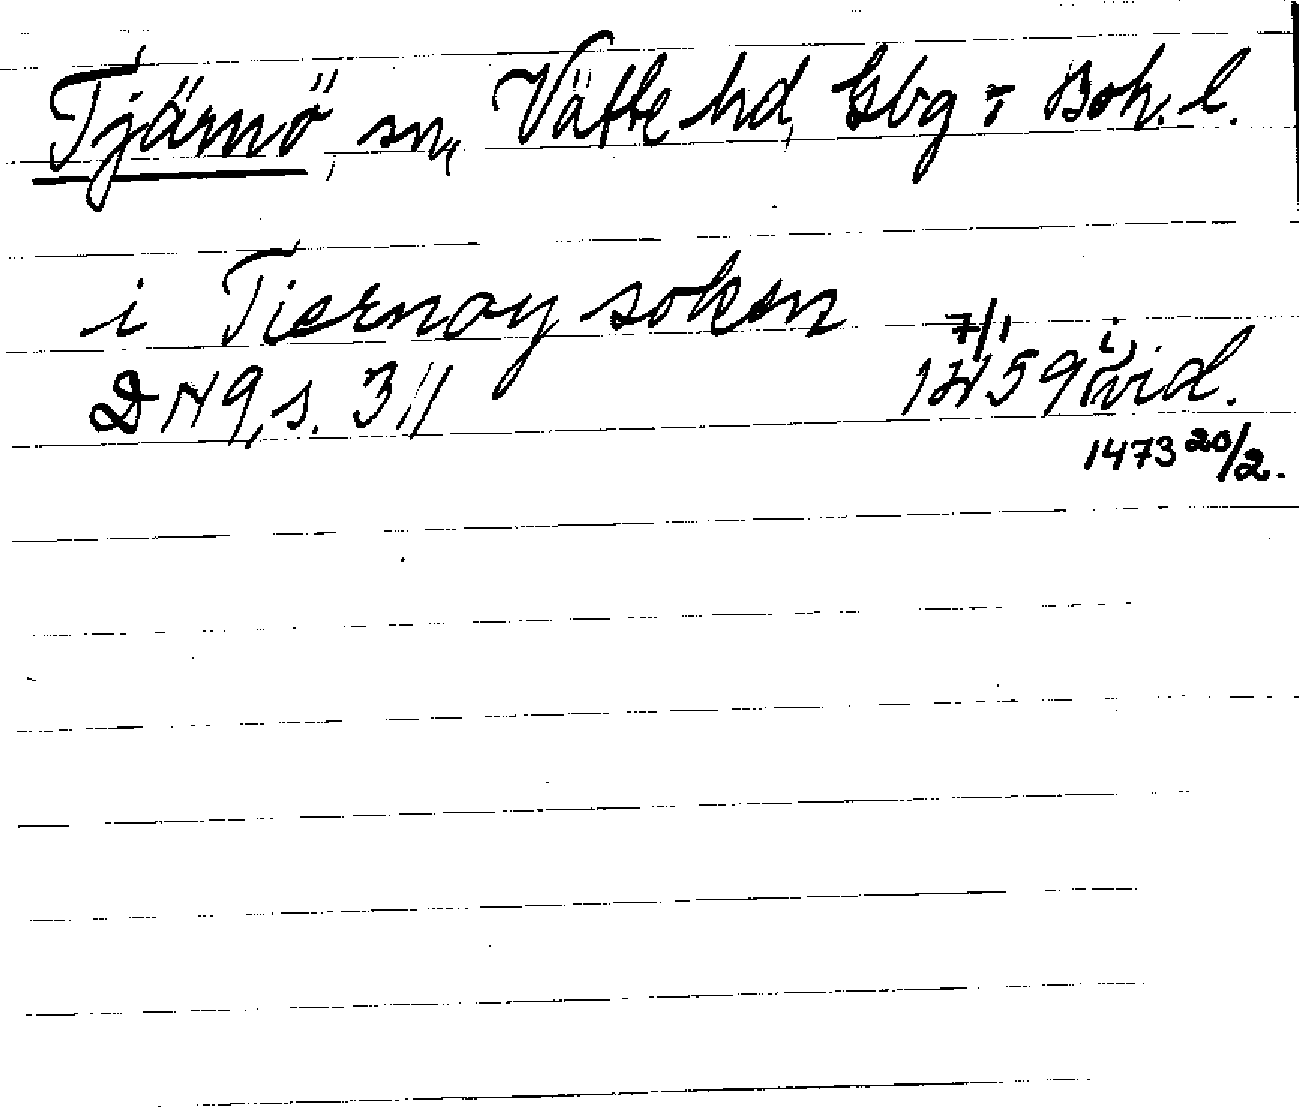 Tjärnö, sn, Vätte hd, Gbg o Boh. l.
i Tiernoy soken
DN 9, s. 311 1459 7/1 i vid.
1473 20/2.